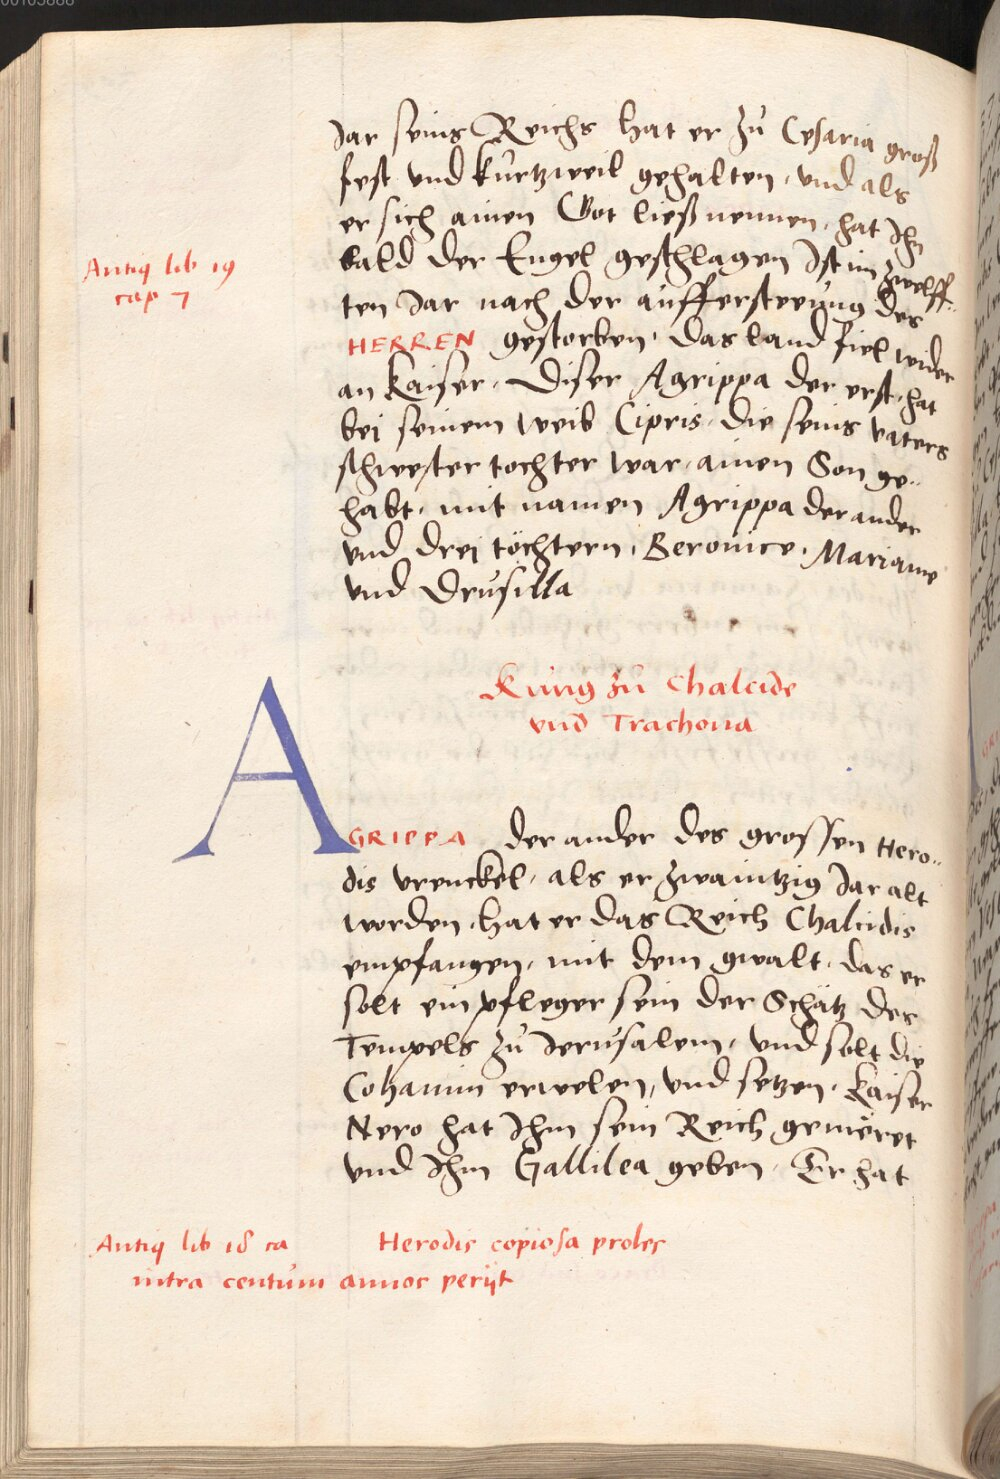 00105888
Jar seins Reichs hat er zů Cesaria groß
fest vnd kůrtzweil gehalten, vnd als
er sich ainen Got ließ nennen, hat Ihn
bald der Engel geschlagen Ist im zwelff-
Antiq lib 19
cap 7
ten Jar nach der aůffersteeůng des
HERREN gestorben. Das land fiel wider
an Kaiser. Diser Agrippa der erst, hat
bei seinem Weib Cipris, die seins vaters
schwester tochter war, ainen Son ge-
habt, mit namen Agrippa der ander
vnd drei töchtern, Beronice, Mariame
vnd Drůsilla
Kůnig zů Chalcide
vnd Trachona
AGRIPPA der ander des grossen Hero-
dis vrenckel, als er zwaintzig Jar alt
worden, hat er das Reich Chalcidis
empfangen, mit dem gwalt, das er
solt ein pfleger sein der Schätz des
Tempels zů Jerůsalem, vnd solt die
Cohanim erwelen, vnd setzen. Kaiser
Nero hat Ihm sein Reich gemeret
vnd Ihm Gallilea geben, Er hat
Antiq lib 18 ca Herodis copiosa proles
intra centům annos perijt